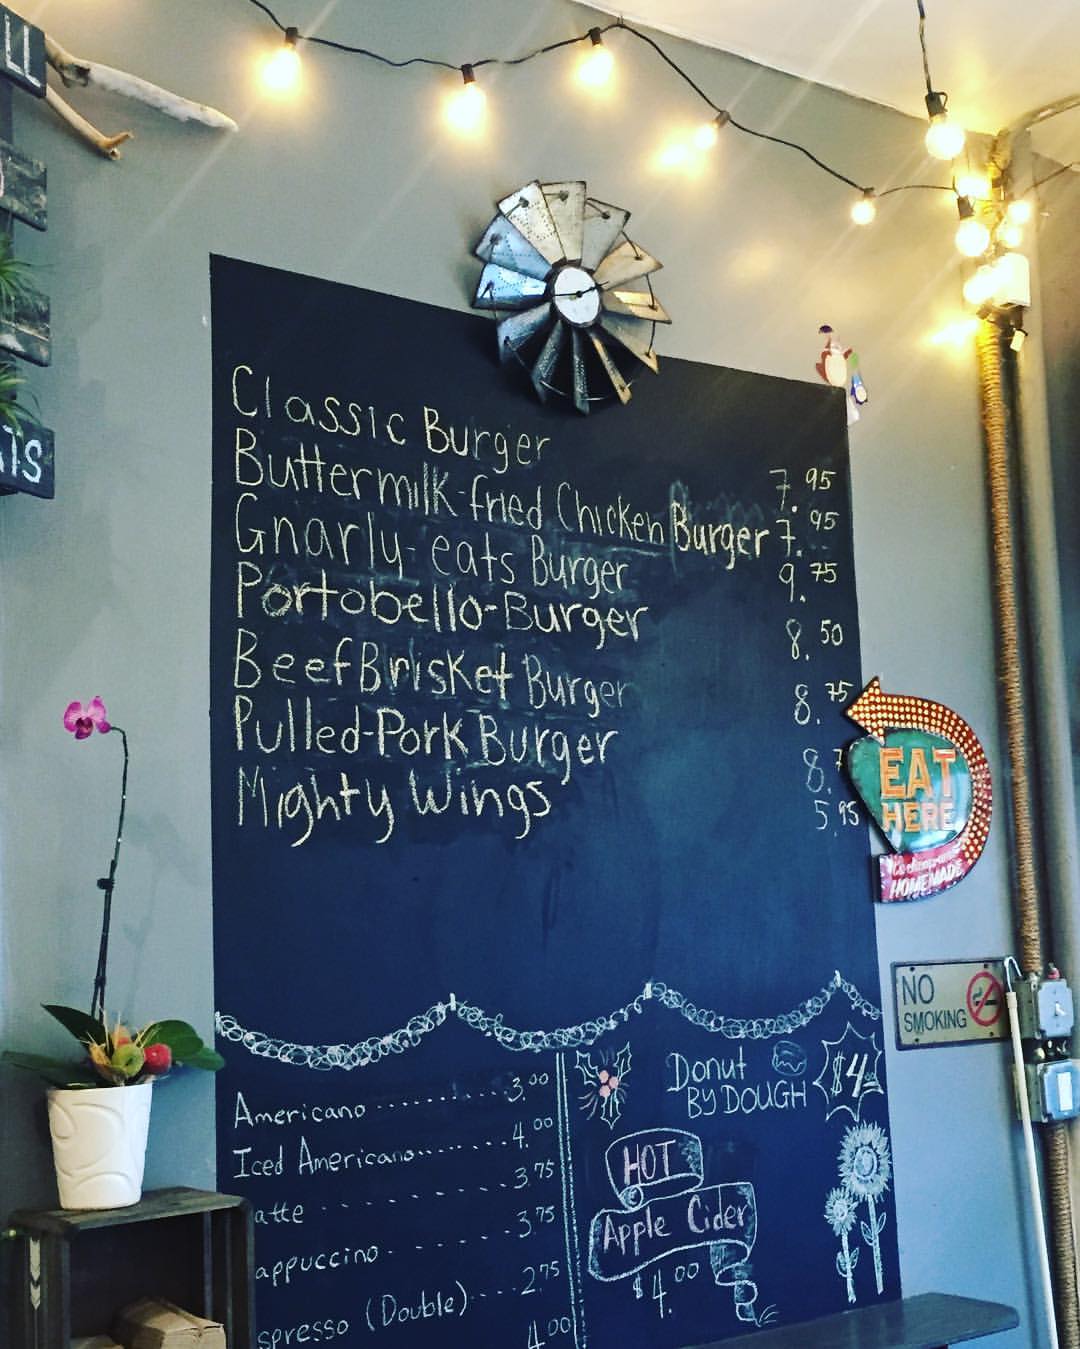 LL
Classic Burger 7.95
Buttermilk-fried Chicken Burger 7.95
Gnarly-eats Burger 9.75
Portobello-Burger 8.50
Beef Brisket Burger 8.75
Pulled-Pork Burger 8.7
Mighty Wings 5.95
EAT
HERE
HOMEMADE
NO
SMOKING
Americano ......... 3.00
Iced Americano ....... 4.00
atte .......... 3.75
appuccino ....... 3.75
spresso (Double) .... 2.75
4.00
Donut
BY DOUGH
$4
HOT
Apple Cider
$4.00